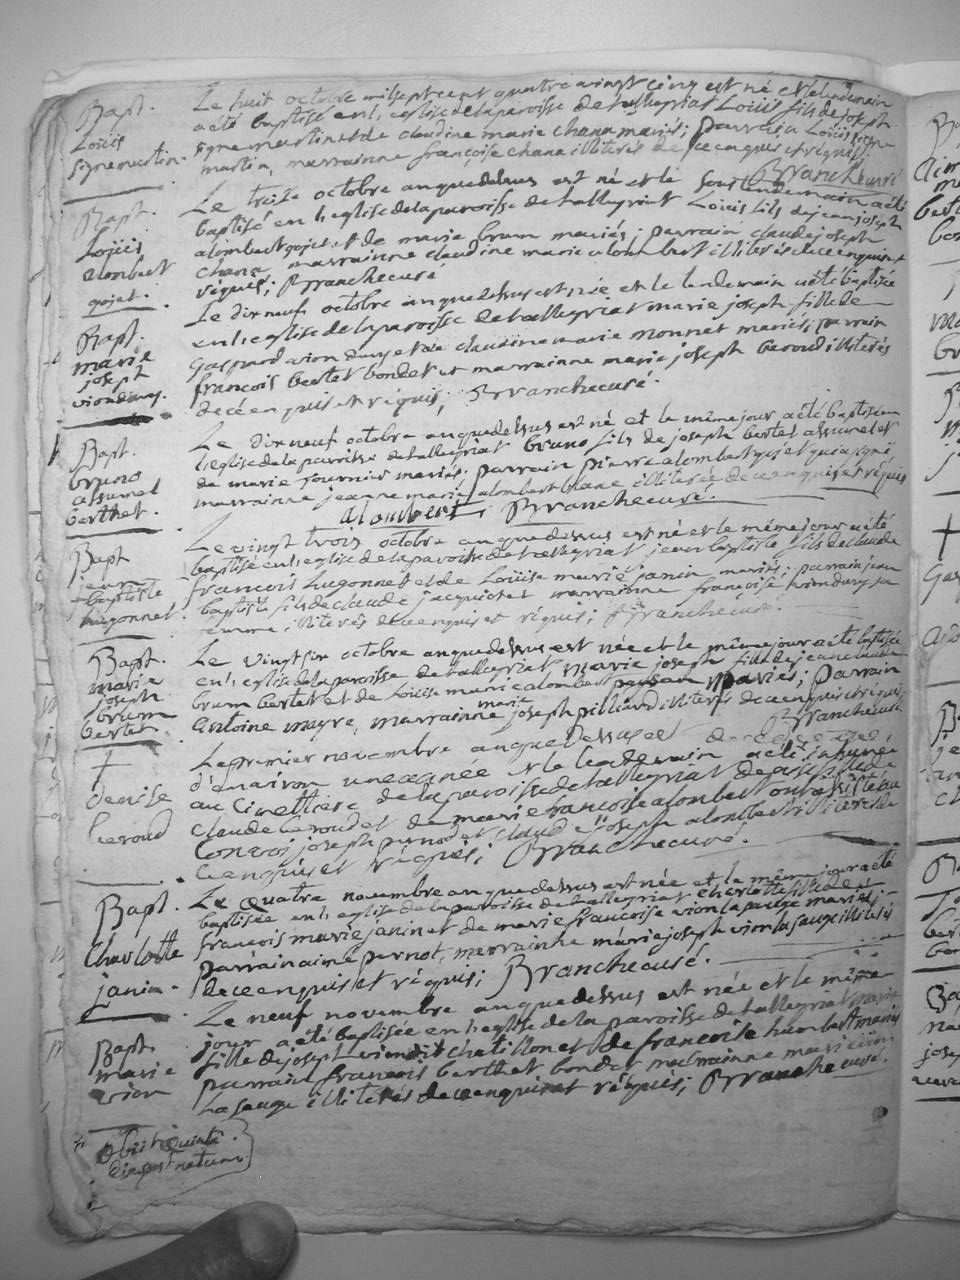 Bapt.
Loüis
signemartin.
Le huit octobre mil sept cent quatre vingt cinq est né et le lendemain
a été baptisé en l'eglise de la paroisse de talleyriat Loüis fils de joseph
signemartin et de claudine marie chana mariés; parrain Loüis signe
martin, marrainne françoise chana illiterés de ce enquis et réquis;
Branche curé
Bapt.
Loüis
alombert
gojet.
Le treize octobre an que dessus est né et le surlendemain a été
baptisé en l'eglise de la paroisse de talleyriat Loüis fils de jean joseph
alombert gojet et de marie brum mariés; parrain claude joseph
chana, marrainne claudine marie alombert illiterés de ce enquis et
réquis; Branche curé
Bapt.
marie
joseph
vion
Le dix neuf octobre an que dessus est née et le lendemain a été baptisée
en l'eglise de la paroisse de talleyriat marie joseph fille de
gaspard vion et de claudine marie monnet mariés; parrain
francois bertet bondet et marrainne marie joseph beroud illiterés
de ce enquis et réquis; Branche curé.
Bapt.
bruno
assumel
berthet.
Le dix neuf octobre an que dessus est né et le même jour a été baptisé en
l'eglise de la parroisse de talleyriat bruno fils de joseph bertet assumel et
de marie fournier mariés; parrain pierre alombert gojet qui a signé,
marrainne jeanne marie alombert illiterée de ce enquise et réquise
alombert, Branche curé.
Bapt
jean
baptiste
hugonnet.
Le vingt trois octobre an que dessus est né et le même jour a été
baptisé en l'eglise de la paroisse de talleyriat jean baptiste fils de claude
francois hugonnet et de Loüise marie janin mariés; parrain jean
baptiste fils de claude jacquiot et marrainne françoise
femme; illiterés de ce enquis et réquis; Branche curé.
Bapt.
marie
joseph
brum
bertet.
Le vingt six octobre an que dessus est née et le même jour a été baptisée
en l'eglise de la paroisse de talleyriat marie joseph fille de jean
brum bertet et de Loüise marie alombert mariés; parrain
antoine mayre, marrainne marie joseph pilliard illiterés de ce enquis et réquis;
Branche curé
†
denise
beroud
Le premier novembre an que dessus est decedée
d'environ une année et le lendemain a été inhumée
au Cimettiere de la paroisse de talleyriat denise fille de
claude beroud et de marie francoise alombert ont assisté au
Convoi joseph pernod et claude joseph alombert illiterés de
ce enquis et réquis; Branche curé.
Bapt.
Charlotte
janin.
Le quatre novembre an que dessus est née et le même jour a été
baptisée en l'eglise de la paroisse de talleyriat charlotte fille de
francois marie janin et de marie francoise vion la sauge mariés;
parrain aime pernot, marrainne marie joseph vion la sauge illiterés
de ce enquis et réquis; Branche curé.
Bapt.
marie
vion
Le neuf novembre an que dessus est née et le même
jour a été baptisée en l'eglise de la paroisse de talleyriat marie
fille de joseph vion dit chatillon et de francoise humbert mariés
parrain francois berthet bondet marrainne marie vion
La sauge illiterés de ce enquis et réquis; Branche curé.
obiit